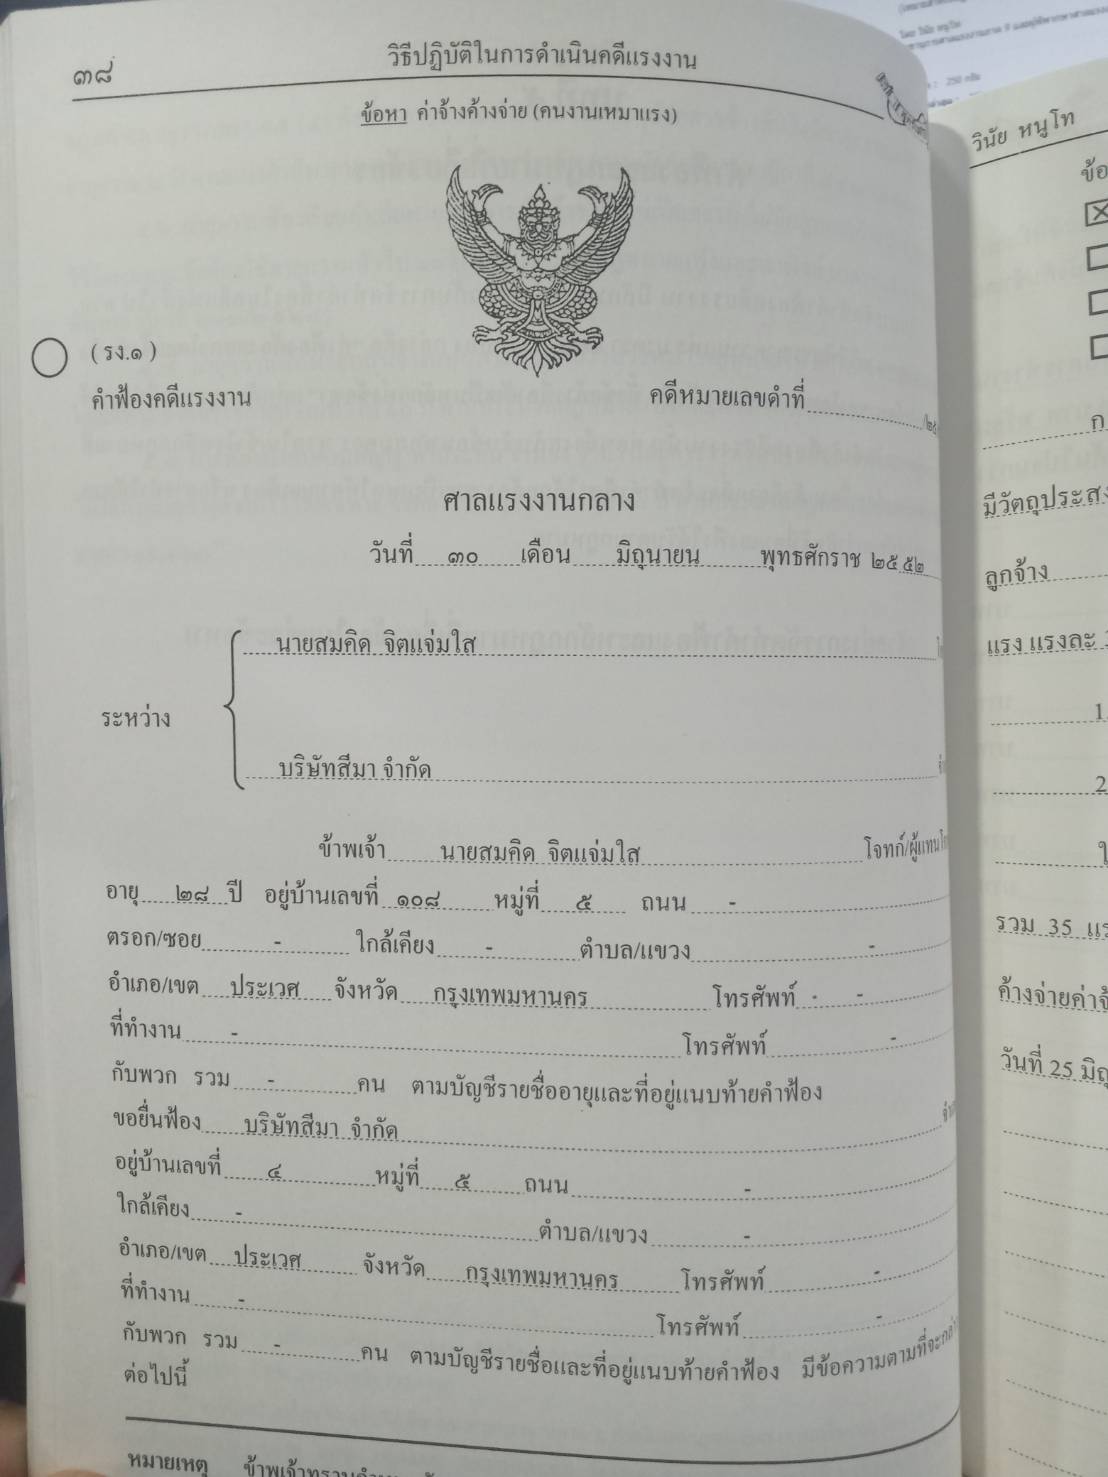 ๓๘
วิธีปฏิบัติในการดำเนินคดีแรงงาน
ข้อหา ค่าจ้างค้างจ่าย (คนงานเหมาแรง)
(รง.๑)
คำฟ้องคดีแรงงาน คดีหมายเลขดำที่
ศาลแรงงานกลาง
วันที่ ๓๐ เดือน มิถุนายน พุทธศักราช ๒๕๕๒
นายสมคิด จิตแจ่มใส
ระหว่าง
บริษัทสีมา จำกัด
ข้าพเจ้า นายสมคิด จิตแจ่มใส โจทก์/ผู้แทน
อายุ ๒๘ ปี อยู่บ้านเลขที่ ๑๐๘ หมู่ที่ ๕ ถนน -
ตรอก/ซอย - ใกล้เคียง - ตำบล/แขวง -
อำเภอ/เขต ประเวศ จังหวัด กรุงเทพมหานคร โทรศัพท์ - -
ที่ทำงาน - โทรศัพท์ -
กับพวก รวม - คน ตามบัญชีรายชื่ออายุและที่อยู่แนบท้ายคำฟ้อง
ขอยื่นฟ้อง บริษัทสีมา จำกัด
อยู่บ้านเลขที่ ๔ หมู่ที่ ๕ ถนน -
ใกล้เคียง - ตำบล/แขวง -
อำเภอ/เขต ประเวศ จังหวัด กรุงเทพมหานคร โทรศัพท์ -
ที่ทำงาน - โทรศัพท์ -
กับพวก รวม - คน ตามบัญชีรายชื่อและที่อยู่แนบท้ายคำฟ้อง มีข้อความตามที่จะ
ต่อไปนี้
หมายเหตุ
วินัย หนูโท
ข้อ
ก
มีวัตถุประสง
ลูกจ้าง
แรง แรงละ
1
2
รวม 35
ค้างจ่ายค่าจ้
วันที่ 25 มิถุ